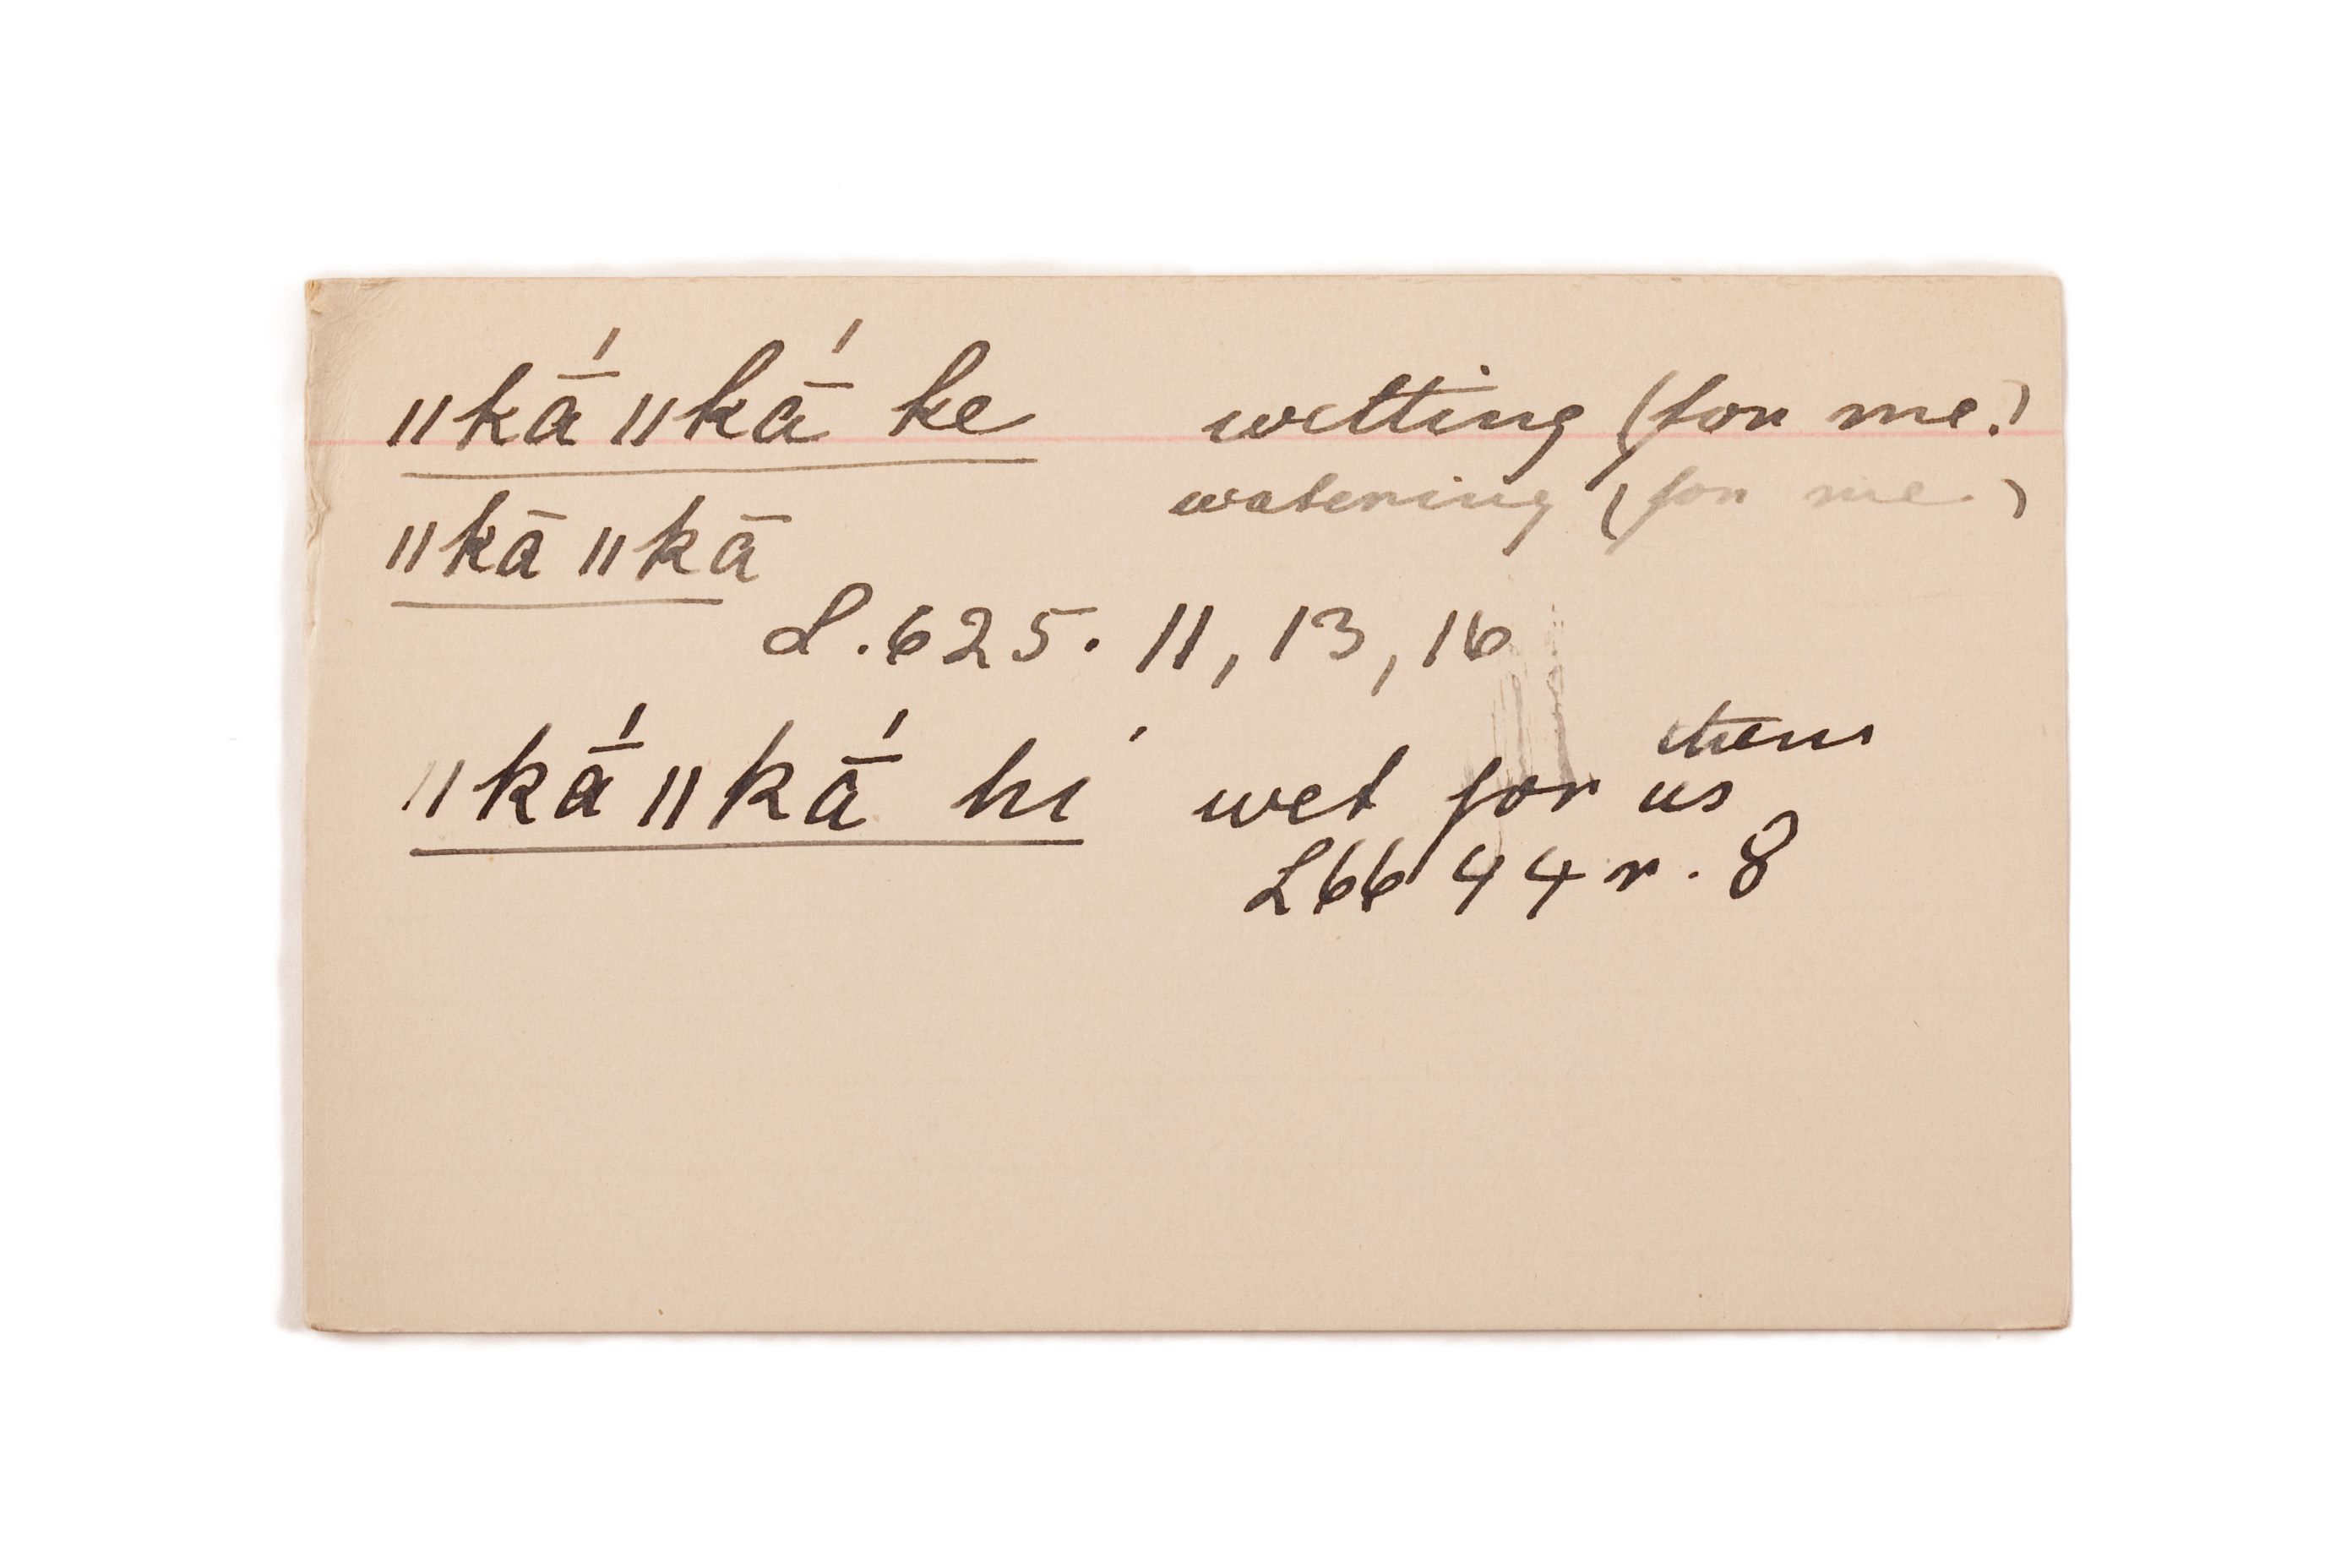 ǁkā́ ǁkā́ ke wetting (for me.)
watering (for me)
ǁkā ǁkā
L. 625. 11, 13, 16
them
ǁkā́ ǁkā́ hi wet for us
L66 44 r. 8